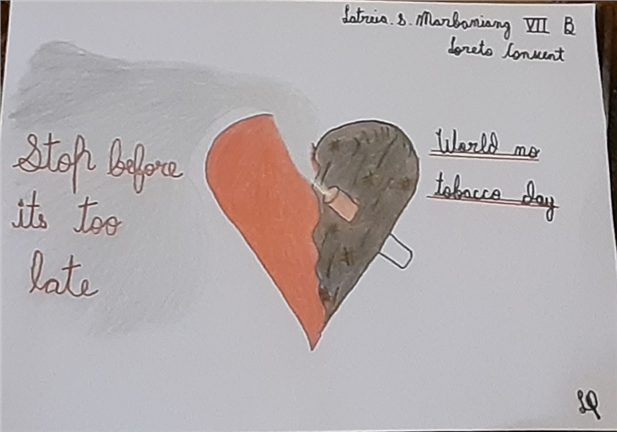 Latreia. S. Marbaniang VII B
Loreto Convent
Stop before
its too
late
World no
tobacco day